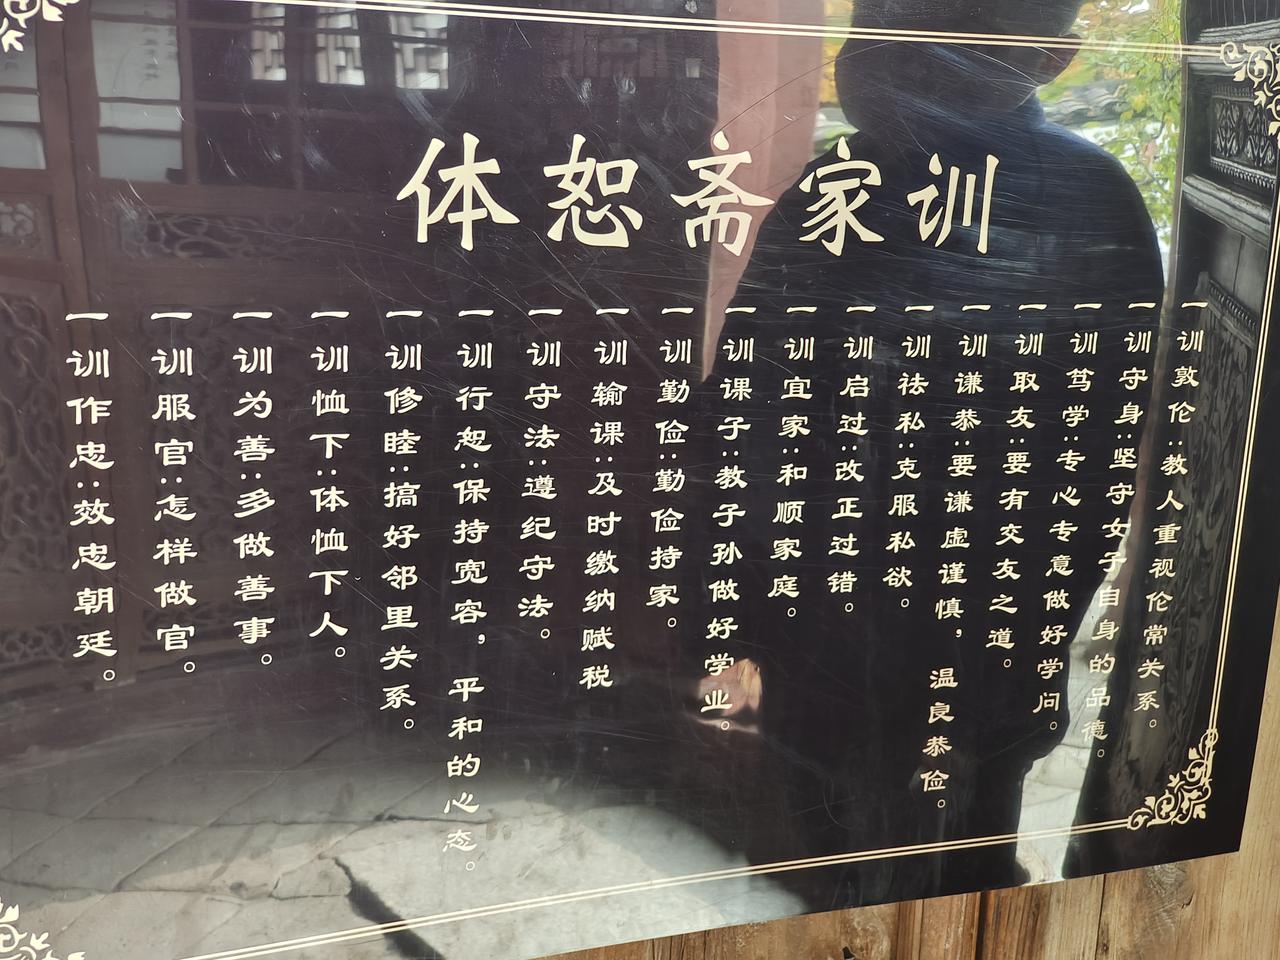 体恕斋家训
一训敦伦:教人重视伦常关系。
一训守身:坚守女子自身的品德。
一训笃学:专心专意做好学问。
一训取友:要有交友之道。
一训谦恭:要谦虚谨慎,温良恭俭。
一训祛私:克服私欲。
一训启过:改正过错。
一训宜家:和顺家庭。
一训课子:教子孙做好学业。
一训勤俭:勤俭持家。
一训输课:及时缴纳赋税
一训守法:遵纪守法。
一训行恕:保持宽容,平和的心态。
一训修睦:搞好邻里关系。
一训恤下:体恤下人。
一训为善:多做善事。
一训服官:怎样做官。
一训作忠:效忠朝廷。